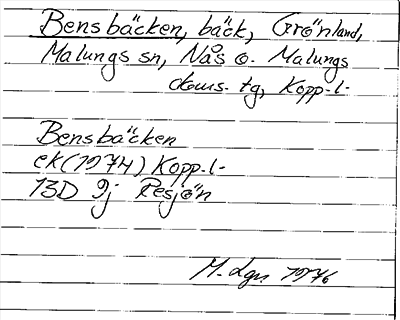 Bensbäcken, bäck, Grönland,
Malungs sn, Nås o. Malungs
doms. tg, Kopp-l-
Bensbäcken
ek(1974) Kopp-l-
13D 9j Resjön
M. Lgn 1976